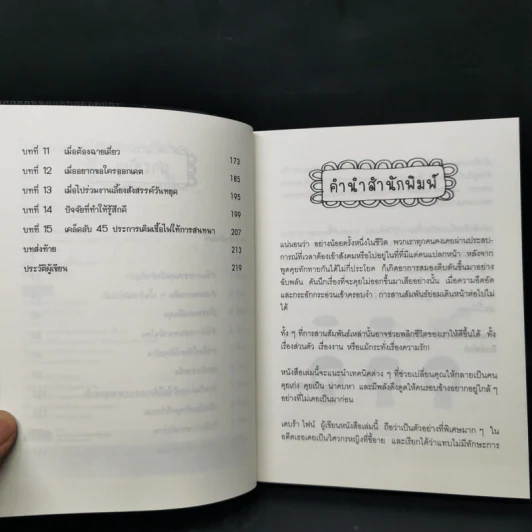 บทที่ 11 เมื่อต้องฉายเดี่ยว 173
บทที่ 12 เมื่ออยากขอใครออกเดต 185
บทที่ 13 เมื่อไปร่วมงานเลี้ยงสังสรรค์วันหยุด 195
บทที่ 14 ปัจจัยที่ทำให้รู้สึกดี 199
บทที่ 15 เคล็ดลับ 45 ประการเติมเชื้อไฟให้การสนทนา 207
บทส่งท้าย 213
ประวัติผู้เขียน 219
คำนำสำนักพิมพ์
แน่นอนว่า อย่างน้อยครั้งหนึ่งในชีวิต พวกเราทุกคนคงเคยผ่านประสบ-
การณ์ที่เวลาต้องเข้าสังคมหรือไปอยู่ในที่ที่มีแต่คนแปลกหน้า หลังจาก
พูดคุยทักทายกันได้ไม่กี่ประโยค ก็เกิดอาการสมองตีบตันขึ้นมาอย่าง
ฉับพลัน ตันนึกเรื่องที่จะคุยไม่ออกขึ้นมาเสียอย่างนั้น เมื่อความอึดอัด
และกระอักกระอ่วนเข้าครอบงำ การสานสัมพันธ์ย่อมเดินหน้าต่อไปไม่
ได้
ทั้ง ๆ ที่การสานสัมพันธ์เหล่านั้นอาจช่วยพลิกชีวิตของเราให้ดีขึ้นได้ ทั้ง
เรื่องส่วนตัว เรื่องงาน หรือแม้กระทั่งเรื่องความรัก!
หนังสือเล่มนี้จะแนะนำเทคนิคต่าง ๆ ที่ช่วยเปลี่ยนคุณให้กลายเป็นคน
คุยเก่ง คุยเป็น น่าคบหา และมีพลังดึงดูดให้คนรอบข้างอยากอยู่ใกล้ ๆ
อย่างที่ไม่เคยเป็นมาก่อน
เดบร้า ไฟน์ ผู้เขียนหนังสือเล่มนี้ ถือว่าเป็นตัวอย่างที่พิเศษมาก ๆ ใน
อดีตเธอเคยเป็นวิศวกรหญิงที่ขี้อาย และเรียกได้ว่าแทบไม่มีทักษะการ